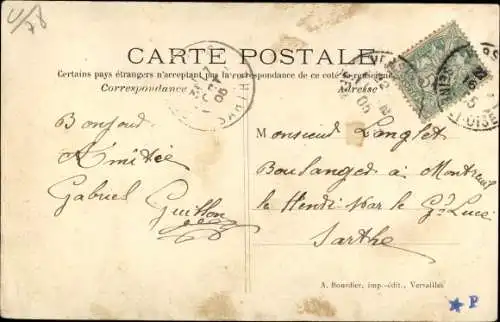 CARTE POSTALE
Certains pays étrangers n'acceptent pas la correspondance de ce côté (se renseigner
Correspondance
Adresse
Bonjour
Amitié
Gabriel Guillon
Monsieur Langlet
Boulanger à Montreuil
le Henri par le Gd Lucé
Sarthe
A. Bourdier, imp.-édit., Versailles
P